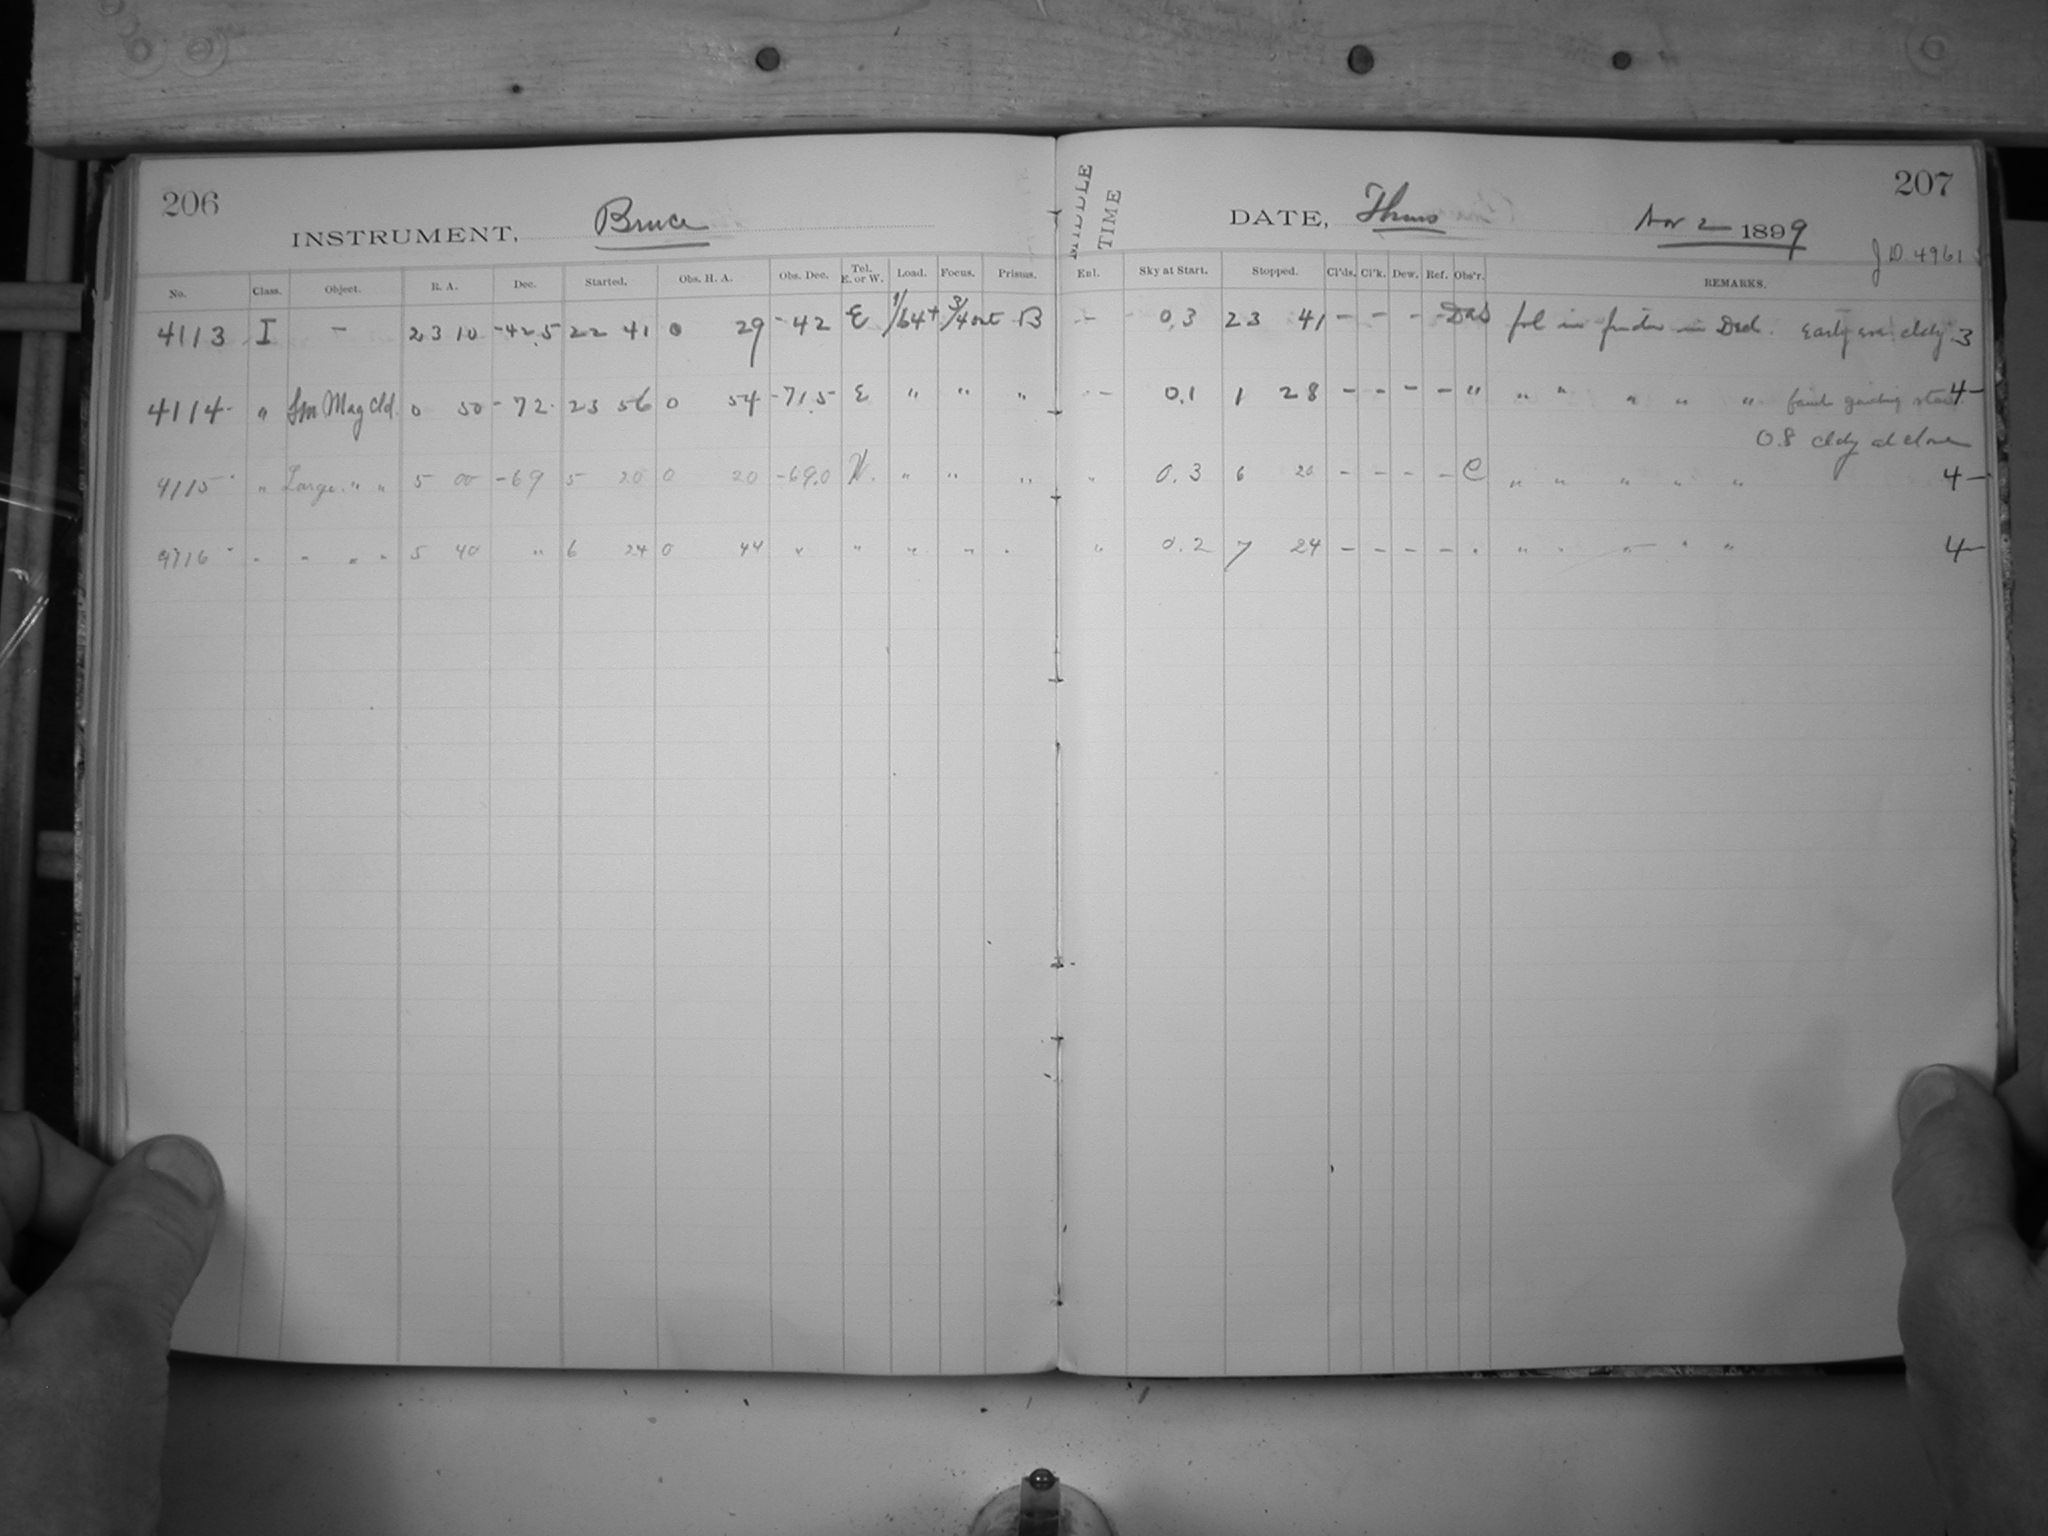 206
INSTRUMENT, Bruce
MIDDLE TIME
DATE, Thurs Nov 2 1899
207
J D. 4961
No. Class. Object. R. A. Dec. Started. Obs. H. A. Obs. Dec. Tel. E. or W. Load. Focus. Prisms. Enl. Sky at Start. Stopped. Cl'ds. Cl'k. Dew. Ref. Obs'r. REMARKS.
4113 I - 23 10 -42.5 22 41 0 29 -42 E 1/64+ 3/4 out B - 0.3 23 41 - - - - fol in finder in Decl. Early eve cldy 3
4114 " Sm Mag Cld. 0 50 -72 23 56 0 54 -71.5 E " " " - 0.1 1 28 - - - - " " " " " " faint guiding star 4-
0.8 cldy at close
4115 " Large " " 5 00 -69 5 20 0 20 -69.0 W. " " " " 0.3 6 20 - - - - C " " " " " 4-
4116 " " " " 5 40 " 6 24 0 44 " " " " " " 0.2 7 24 - - - - " " " " " " 4-